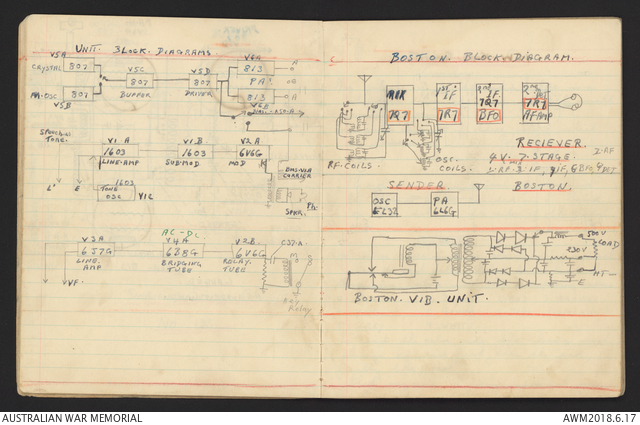 UNIT. BLOCK. DIAGRAMS.
V5A
CRYSTAL
807
V5C
807
BUFFER
V5D
807
DRIVER
V6A
813
PA
813
V6B
MA-OSC
807
V5B
A
B
A
SPEECH
TONE.
V1.A
1603
LINE-AMP
V1.B.
1603
SUB-MOD
V2A
6V6G
MOD
L'
E
1603
TONE
OSC
V1C
CARRIER
SPKR.
V3A
6J7G
LINE.
AMP
AC-DC
V4A
6B8G
BRIDGING
TUBE
V2B
6V6G
RELAY.
TUBE
Relay
VVF.
BOSTON. BLOCK. DIAGRAM.
7Q7
1ST IF
7R7
2ND IF
7Q7
BFO
2ND DET
7R7
AF AMP
RF-COILS.
OSC.
COILS.
RECIEVER.
4V. 7-STAGE.
SENDER.
BOSTON.
OSC
EL32
PA
6L6G
500V
LOAD
230V
HT-
E
BOSTON. VIB. UNIT.
AUSTRALIAN WAR MEMORIAL
AWM2018.6.17